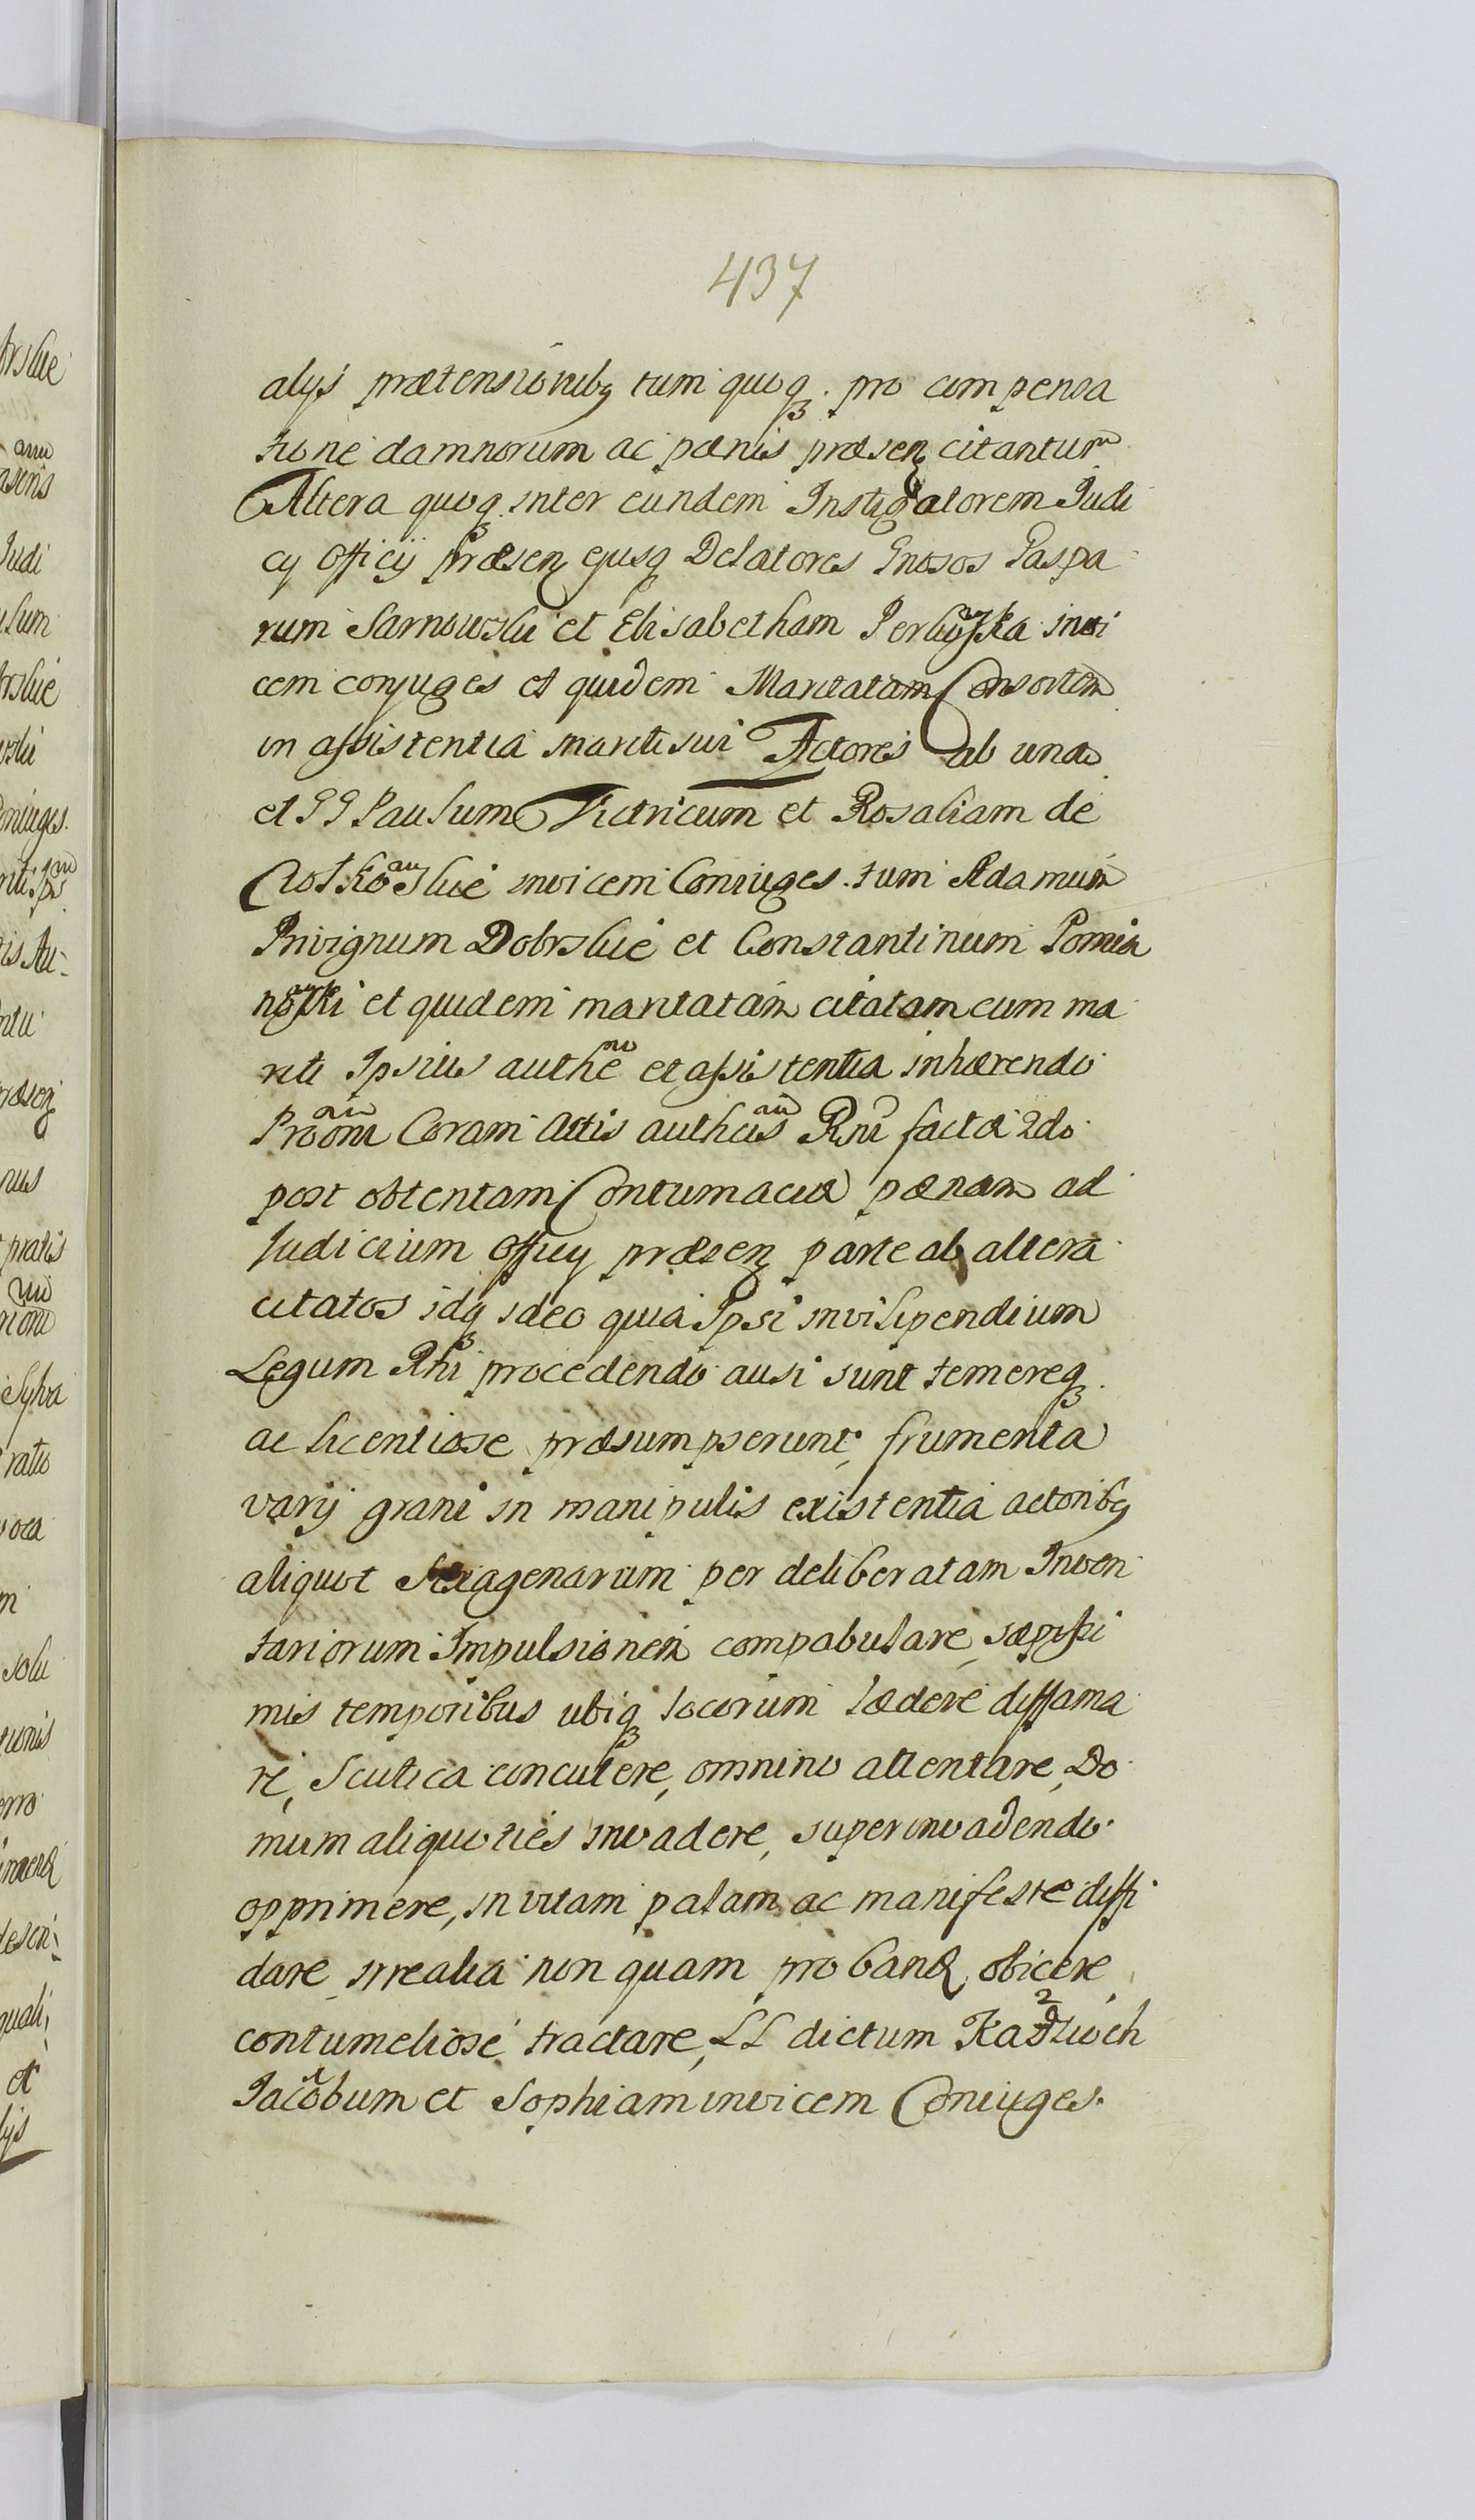 437
alijs prætensionibq tum quoq. pro compensa
tione damnorum ac pænis præsenz citantur
Altera quoq. inter eundem Instigatorem Judi
cij Officij præsenz ejusq Delatores Gnosos Gaspa
rum Sarnowski et Elisabetham invi
cem conjuges et quidem Maritatam Consortem
in assistentia mariti sui Actores ab una
et GG Paulum Victricum et Rosaliam de
invicem Coniuges tum Adamum
Privignum Dobrskie et Constantinum Pomia
nowski et quidem maritatam citatam cum ma
riti Ipsius authe et assistentia inhærendo
Coram Actis facta 2do
post obtentam Contumaciæ pænam ad
Judicium Officij præsenz parte ab altera
citatos idq ideo quia Ipsi in vilipendium
Legum Rhi procedendo ausi sunt temereq.
ac licentiose præsumpserunt, frumenta
varij grani in manipulis existentia actoribq
aliquot Sexagenarum per deliberatam Inven
tariorum Impulsionem compabulare, sæpissi
mis temporibus ubiq locorum lædere diffama
re, Scutica concutere, omnino attentare, Do
mum aliquoties invadere, superinvadendo
opprimere, in vitam palam ac manifeste diffi
dare irrealia nunquam proban obicere,
contumeliose tractare, LL dictum
Jacobum et Sophiam invicem Coniuges.